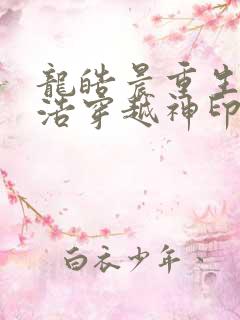 龍皓晨重生
浩穿越神印
白衣少年、